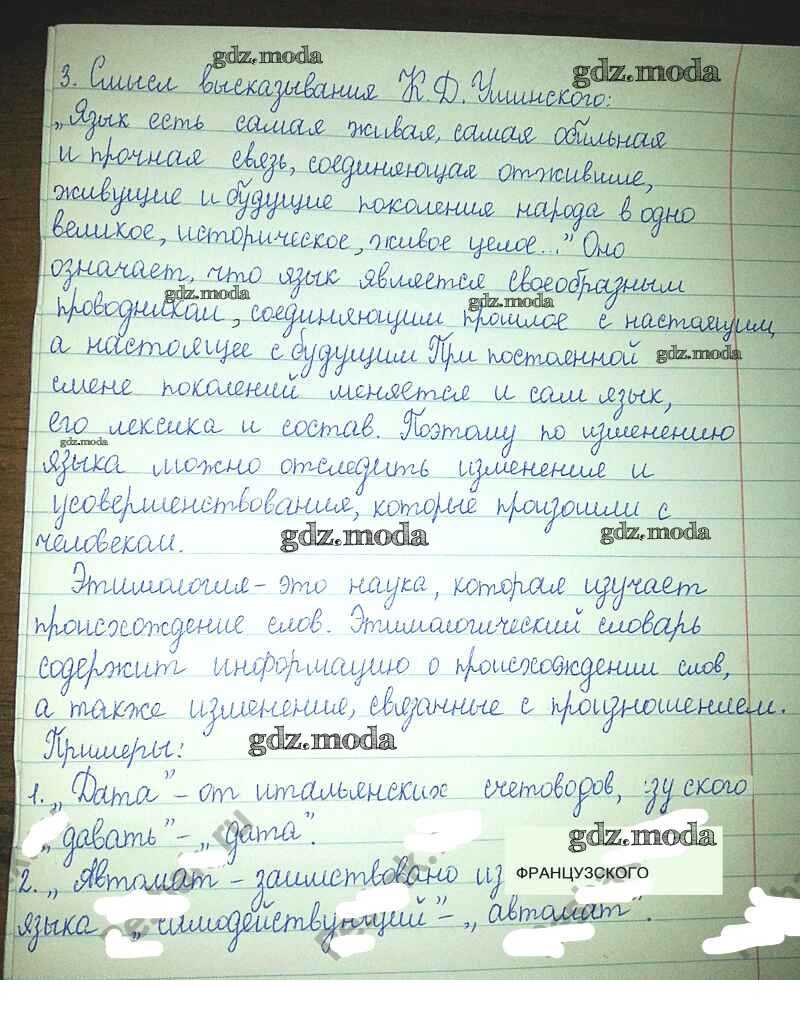 gdz.moda
gdz.moda
3. Смысл высказывания К.Д.Ушинского:
„Язык есть самая живая, самая обильная
и прочная связь, соединяющая отжившие,
живущие и будущие поколения народа в одно
великое, историческое, живое целое..." Оно
означает, что язык является своеобразным
gdz.moda
gdz.moda
проводником, соединяющим прошлое с настоящим,
а настоящее с будущим При постоянной
gdz.moda
смене поколений меняется и сам язык,
его лексика и состав. Поэтому по изменению
gdz.moda
языка можно отследить изменения и
усовершенствования, которые произошли с
человеком.
gdz.moda
gdz.moda
Этимология - это наука, которая изучает
происхождение слов. Этимологический словарь
содержит информацию о происхождении слов,
а также изменения, связанные с произношением.
Примеры:
gdz.moda
1. „Дата" - от итальянских счетоводов, ского
„давать" - „дата".
gdz.moda
2. „Автомат - заимствовано из ФРАНЦУЗСКОГО
языка „ - „автомат".